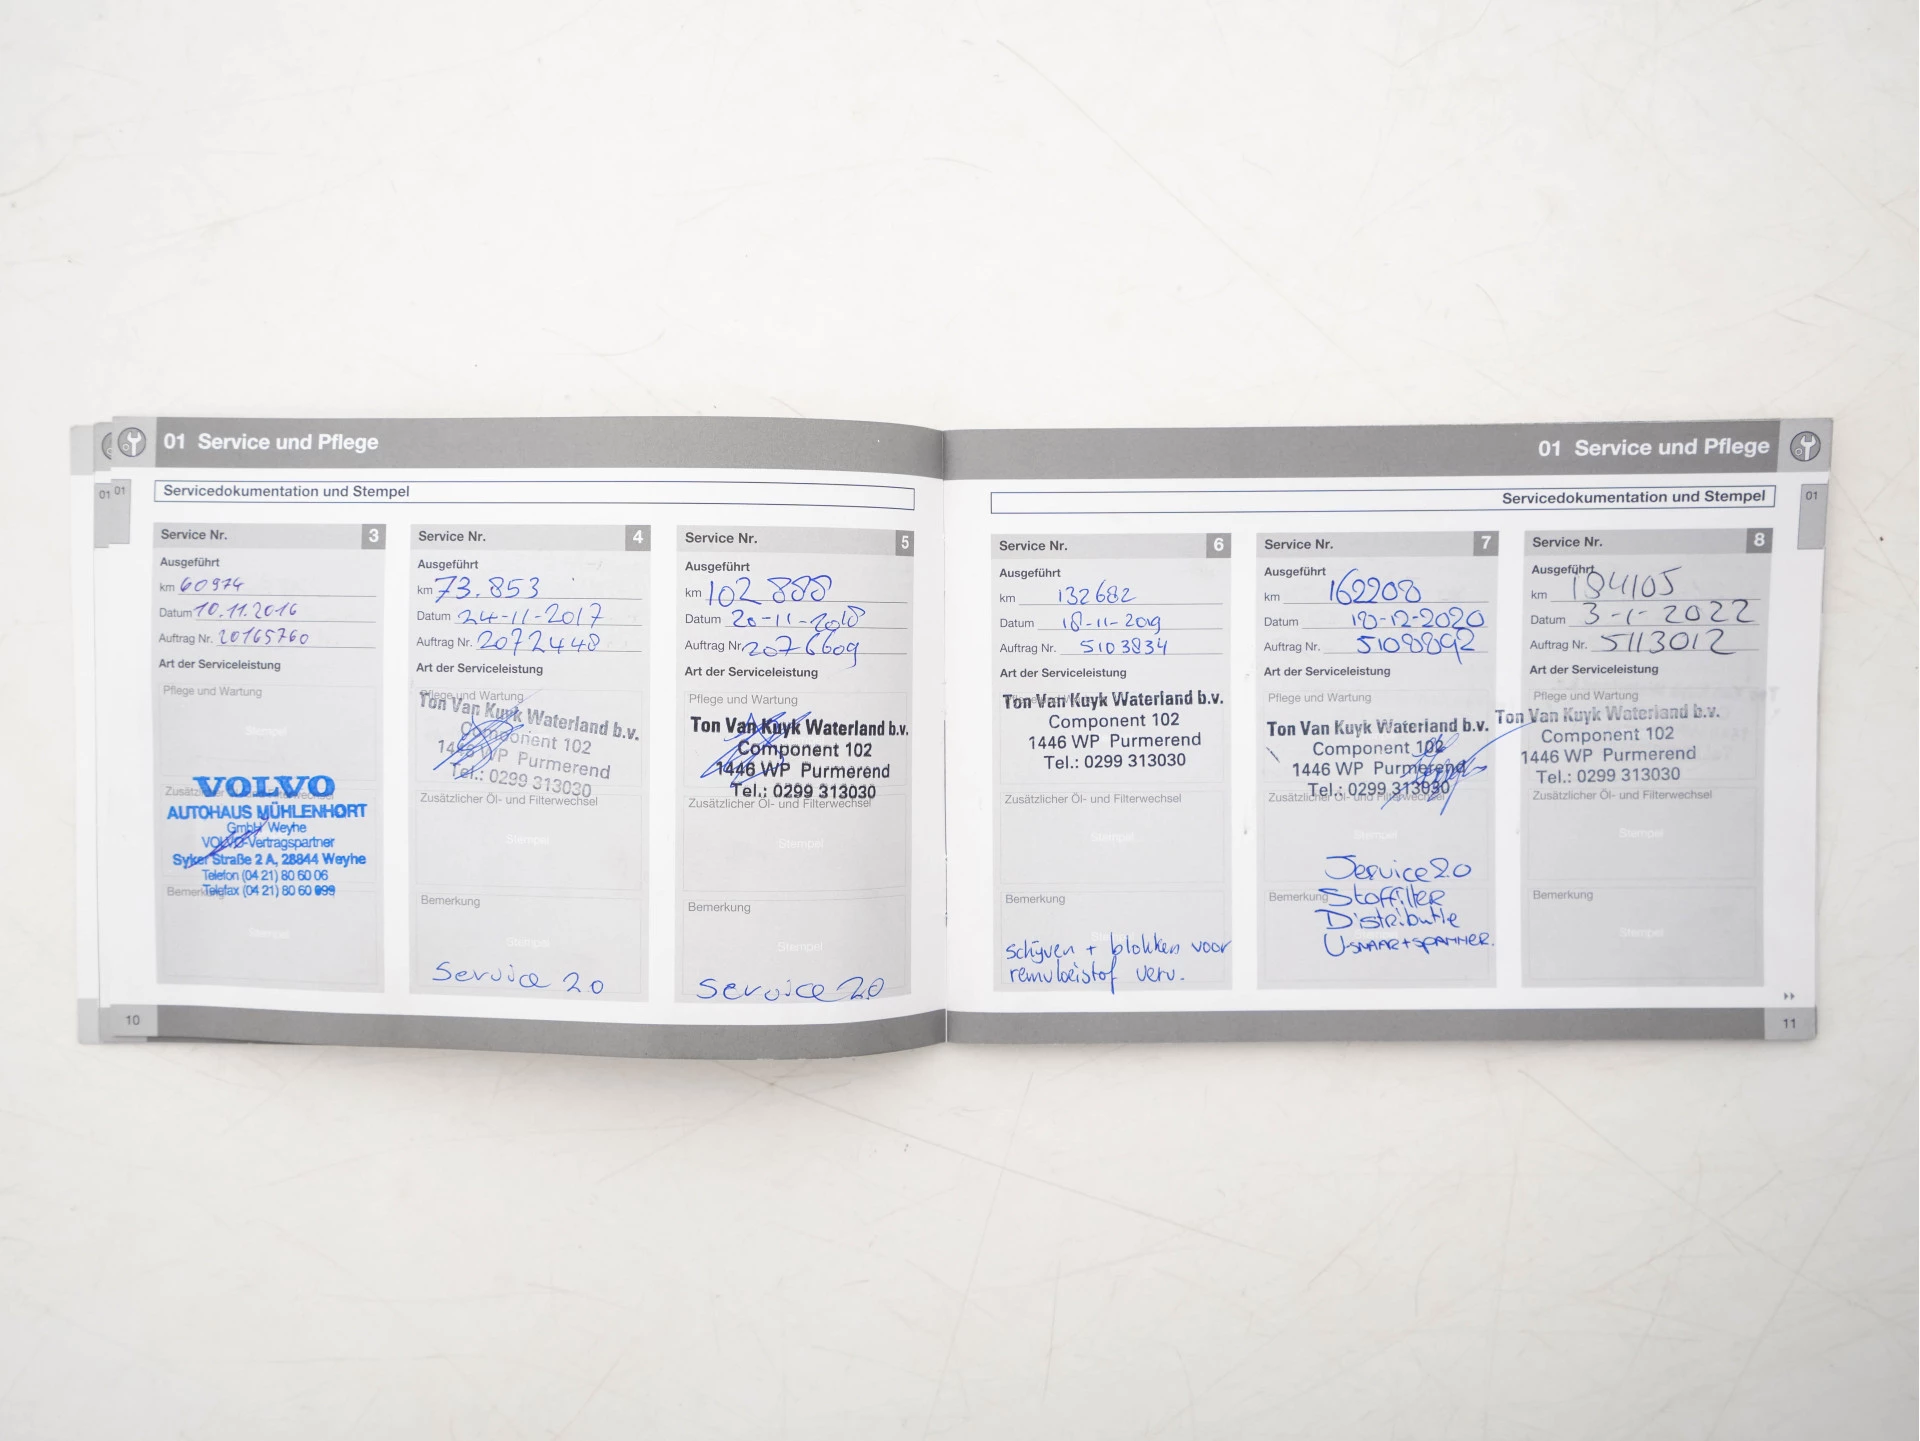 01 Service und Pflege
01 01
Servicedokumentation und Stempel
Service Nr. 3
Ausgeführt
km 60974
Datum 10.11.2016
Auftrag Nr. 20165760
Art der Serviceleistung
Pflege und Wartung
Stempel
VOLVO
AUTOHAUS MÜHLENHORT
GmbH Weyhe
VOLVO-Vertragspartner
Syker Straße 2 A, 28844 Weyhe
Telefon (04 21) 80 60 06
Telefax (04 21) 80 60 899
Bemerkung
Stempel
Service Nr. 4
Ausgeführt
km 73.853
Datum 24-11-2017
Auftrag Nr. 2072448
Art der Serviceleistung
Pflege und Wartung
Ton Van Kuyk Waterland b.v.
Component 102
1446 WP Purmerend
Tel.: 0299 313030
Zusätzlicher Öl- und Filterwechsel
Stempel
Bemerkung
Stempel
Service 2.0
Service Nr. 5
Ausgeführt
km 102 888
Datum 20-11-2018
Auftrag Nr. 2076609
Art der Serviceleistung
Pflege und Wartung
Ton Van Kuyk Waterland b.v.
Component 102
1446 WP Purmerend
Tel.: 0299 313030
Zusätzlicher Öl- und Filterwechsel
Stempel
Bemerkung
Stempel
Service 2.0
10
01 Service und Pflege
01
Servicedokumentation und Stempel
Service Nr. 6
Ausgeführt
km 132682
Datum 18-11-2019
Auftrag Nr. 5103834
Art der Serviceleistung
Ton Van Kuyk Waterland b.v.
Component 102
1446 WP Purmerend
Tel.: 0299 313030
Zusätzlicher Öl- und Filterwechsel
Stempel
Bemerkung
schijven + blokken voor
remvloeistof verv.
Service Nr. 7
Ausgeführt
km 162208
Datum 10-12-2020
Auftrag Nr. 5108892
Art der Serviceleistung
Pflege und Wartung
Ton Van Kuyk Waterland b.v.
Component 102
1446 WP Purmerend
Tel.: 0299 313030
Zusätzlicher Öl- und Filterwechsel
Stempel
Service 2.0
Bemerkung Stoffilter
Distributie
Vsnaar + spanner.
Service Nr. 8
Ausgeführt
km 184105
Datum 3-1-2022
Auftrag Nr. 5113012
Art der Serviceleistung
Pflege und Wartung
Ton Van Kuyk Waterland b.v.
Component 102
1446 WP Purmerend
Tel.: 0299 313030
Zusätzlicher Öl- und Filterwechsel
Stempel
Bemerkung
Stempel
11